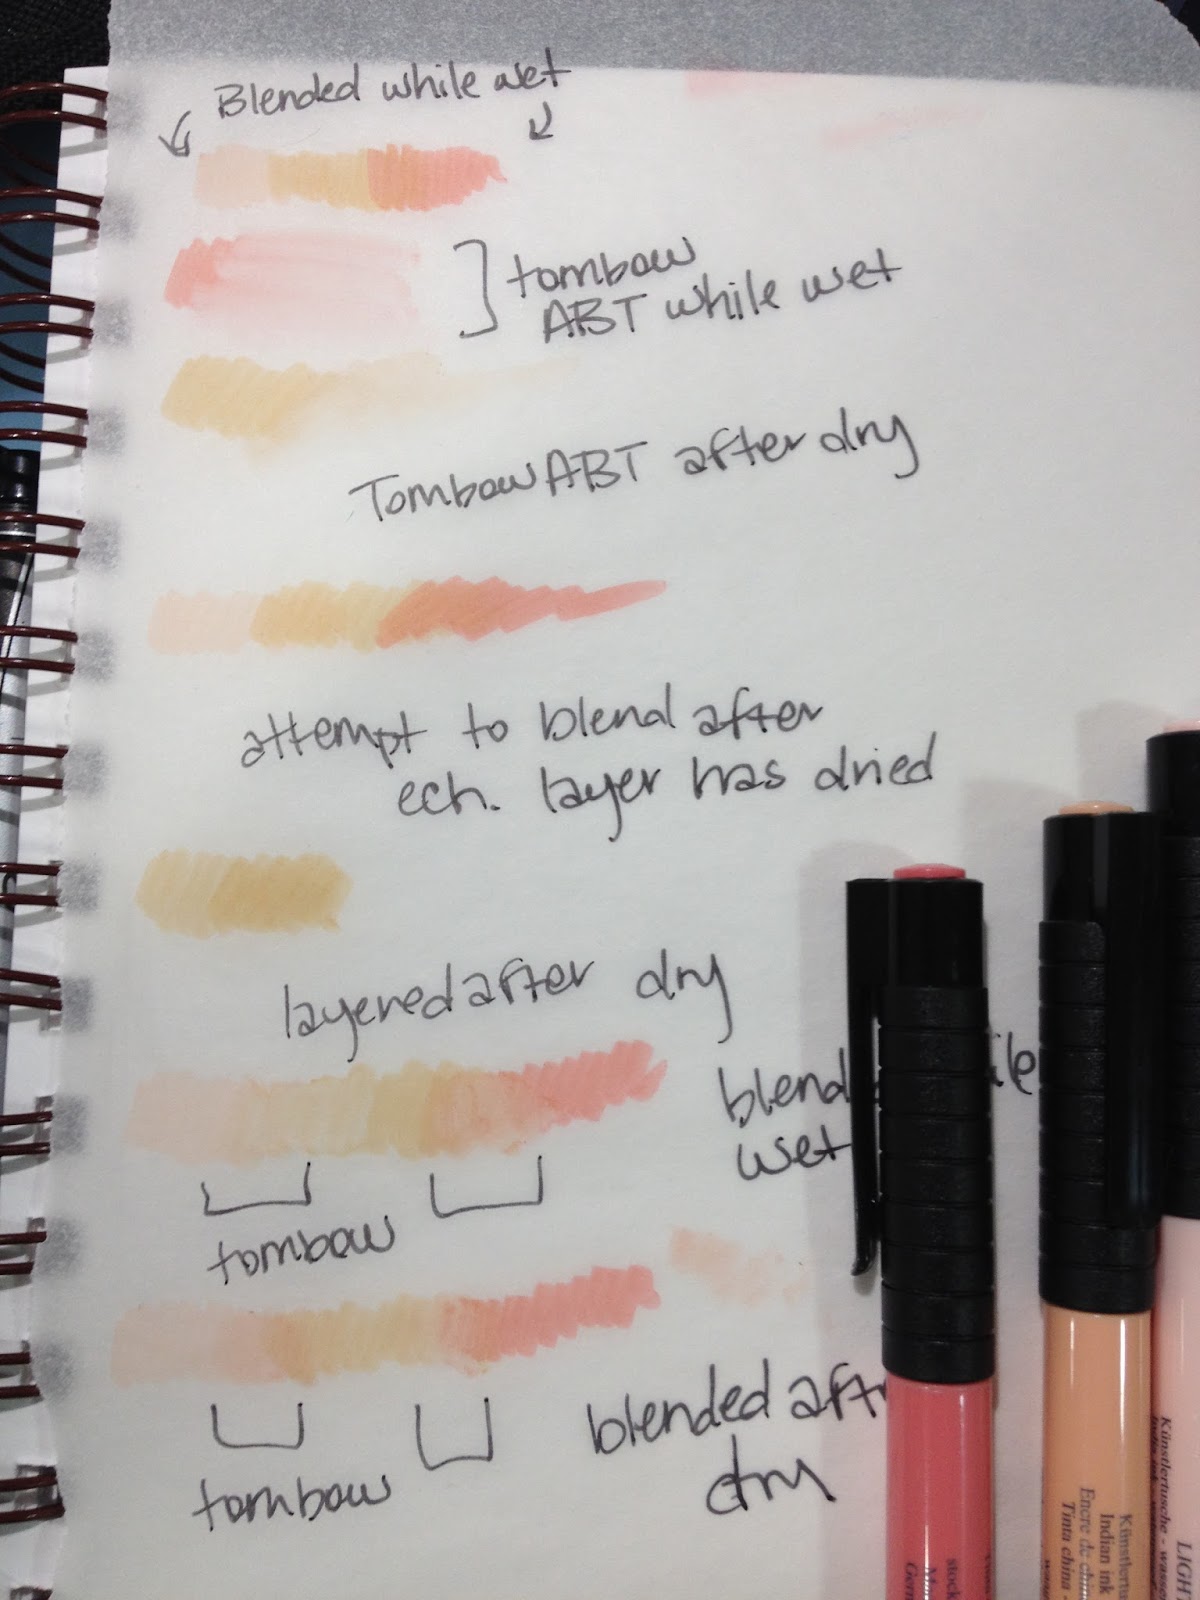 Blended while wet
tombow
ABT while wet
Tombow ABT after dry
attempt to blend after
ech. layer has dried
layered after dry
blend ile
wet
tombow
blended aft
dry
tombow
Künstlertusche - wasser
LIGHT
Künstlertu
Indian ink
Encre de chine
Tinta china -
stock